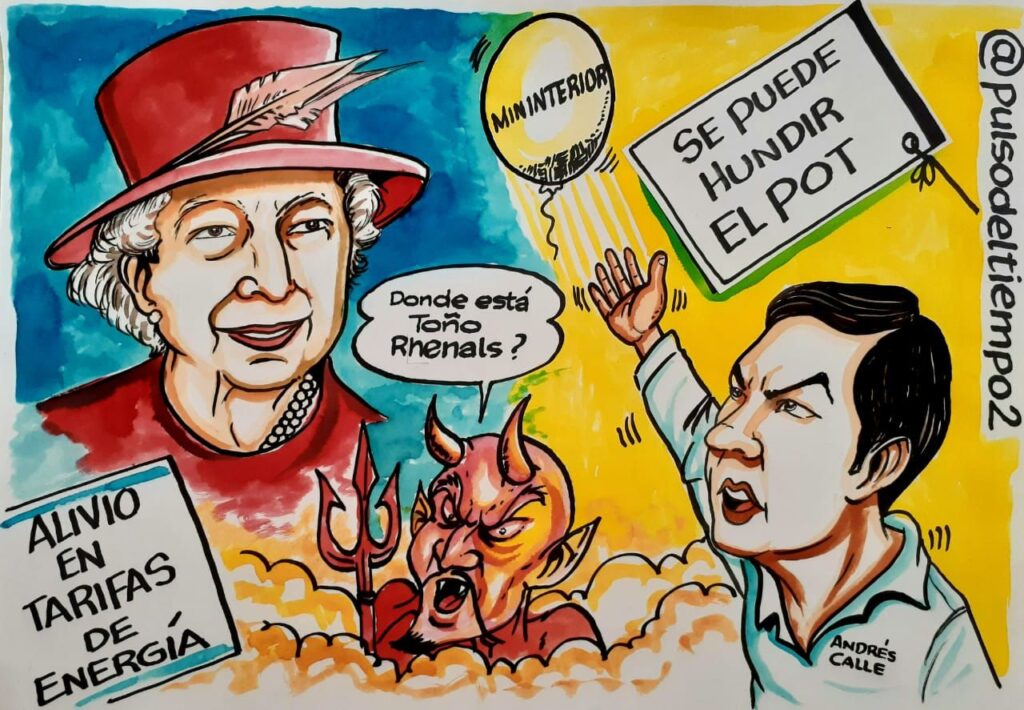 MININTERIOR
SE PUEDE
HUNDIR
EL POT
@pulsodeltiempo2
Donde está
Toño
Rhenals?
ALIVIO
EN
TARIFAS
DE
ENERGÍA
ANDRÉS
CALLE